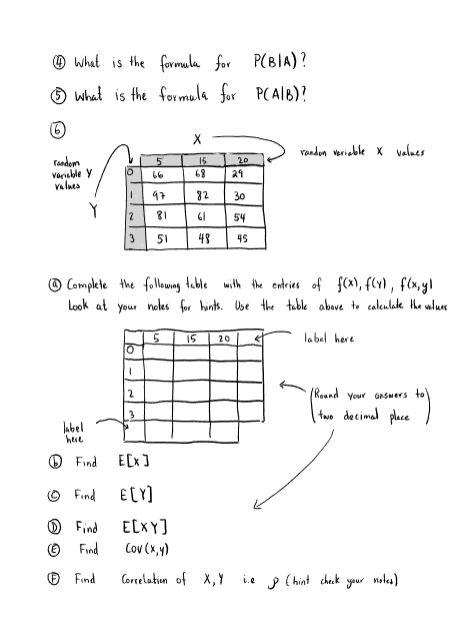 ④ What is the formula for P(B|A)?
⑤ What is the formula for P(A|B)?
⑥
X
random variable X values
random
variable Y
values
Y
5 15 20
0 66 68 29
1 97 82 30
2 81 61 54
3 51 48 45
ⓐ Complete the following table with the entries of f(x), f(Y), f(x,y)
Look at your notes for hints. Use the table above to calculate the values
5 15 20
label here
0
1
2
3
(Round your answers to
two decimal place)
label
here
ⓑ Find E[X]
ⓒ Find E[Y]
Ⓓ Find E[XY]
Ⓔ Find Cov(x,y)
Ⓕ Find Correlation of X,Y i.e ρ (hint check your notes)